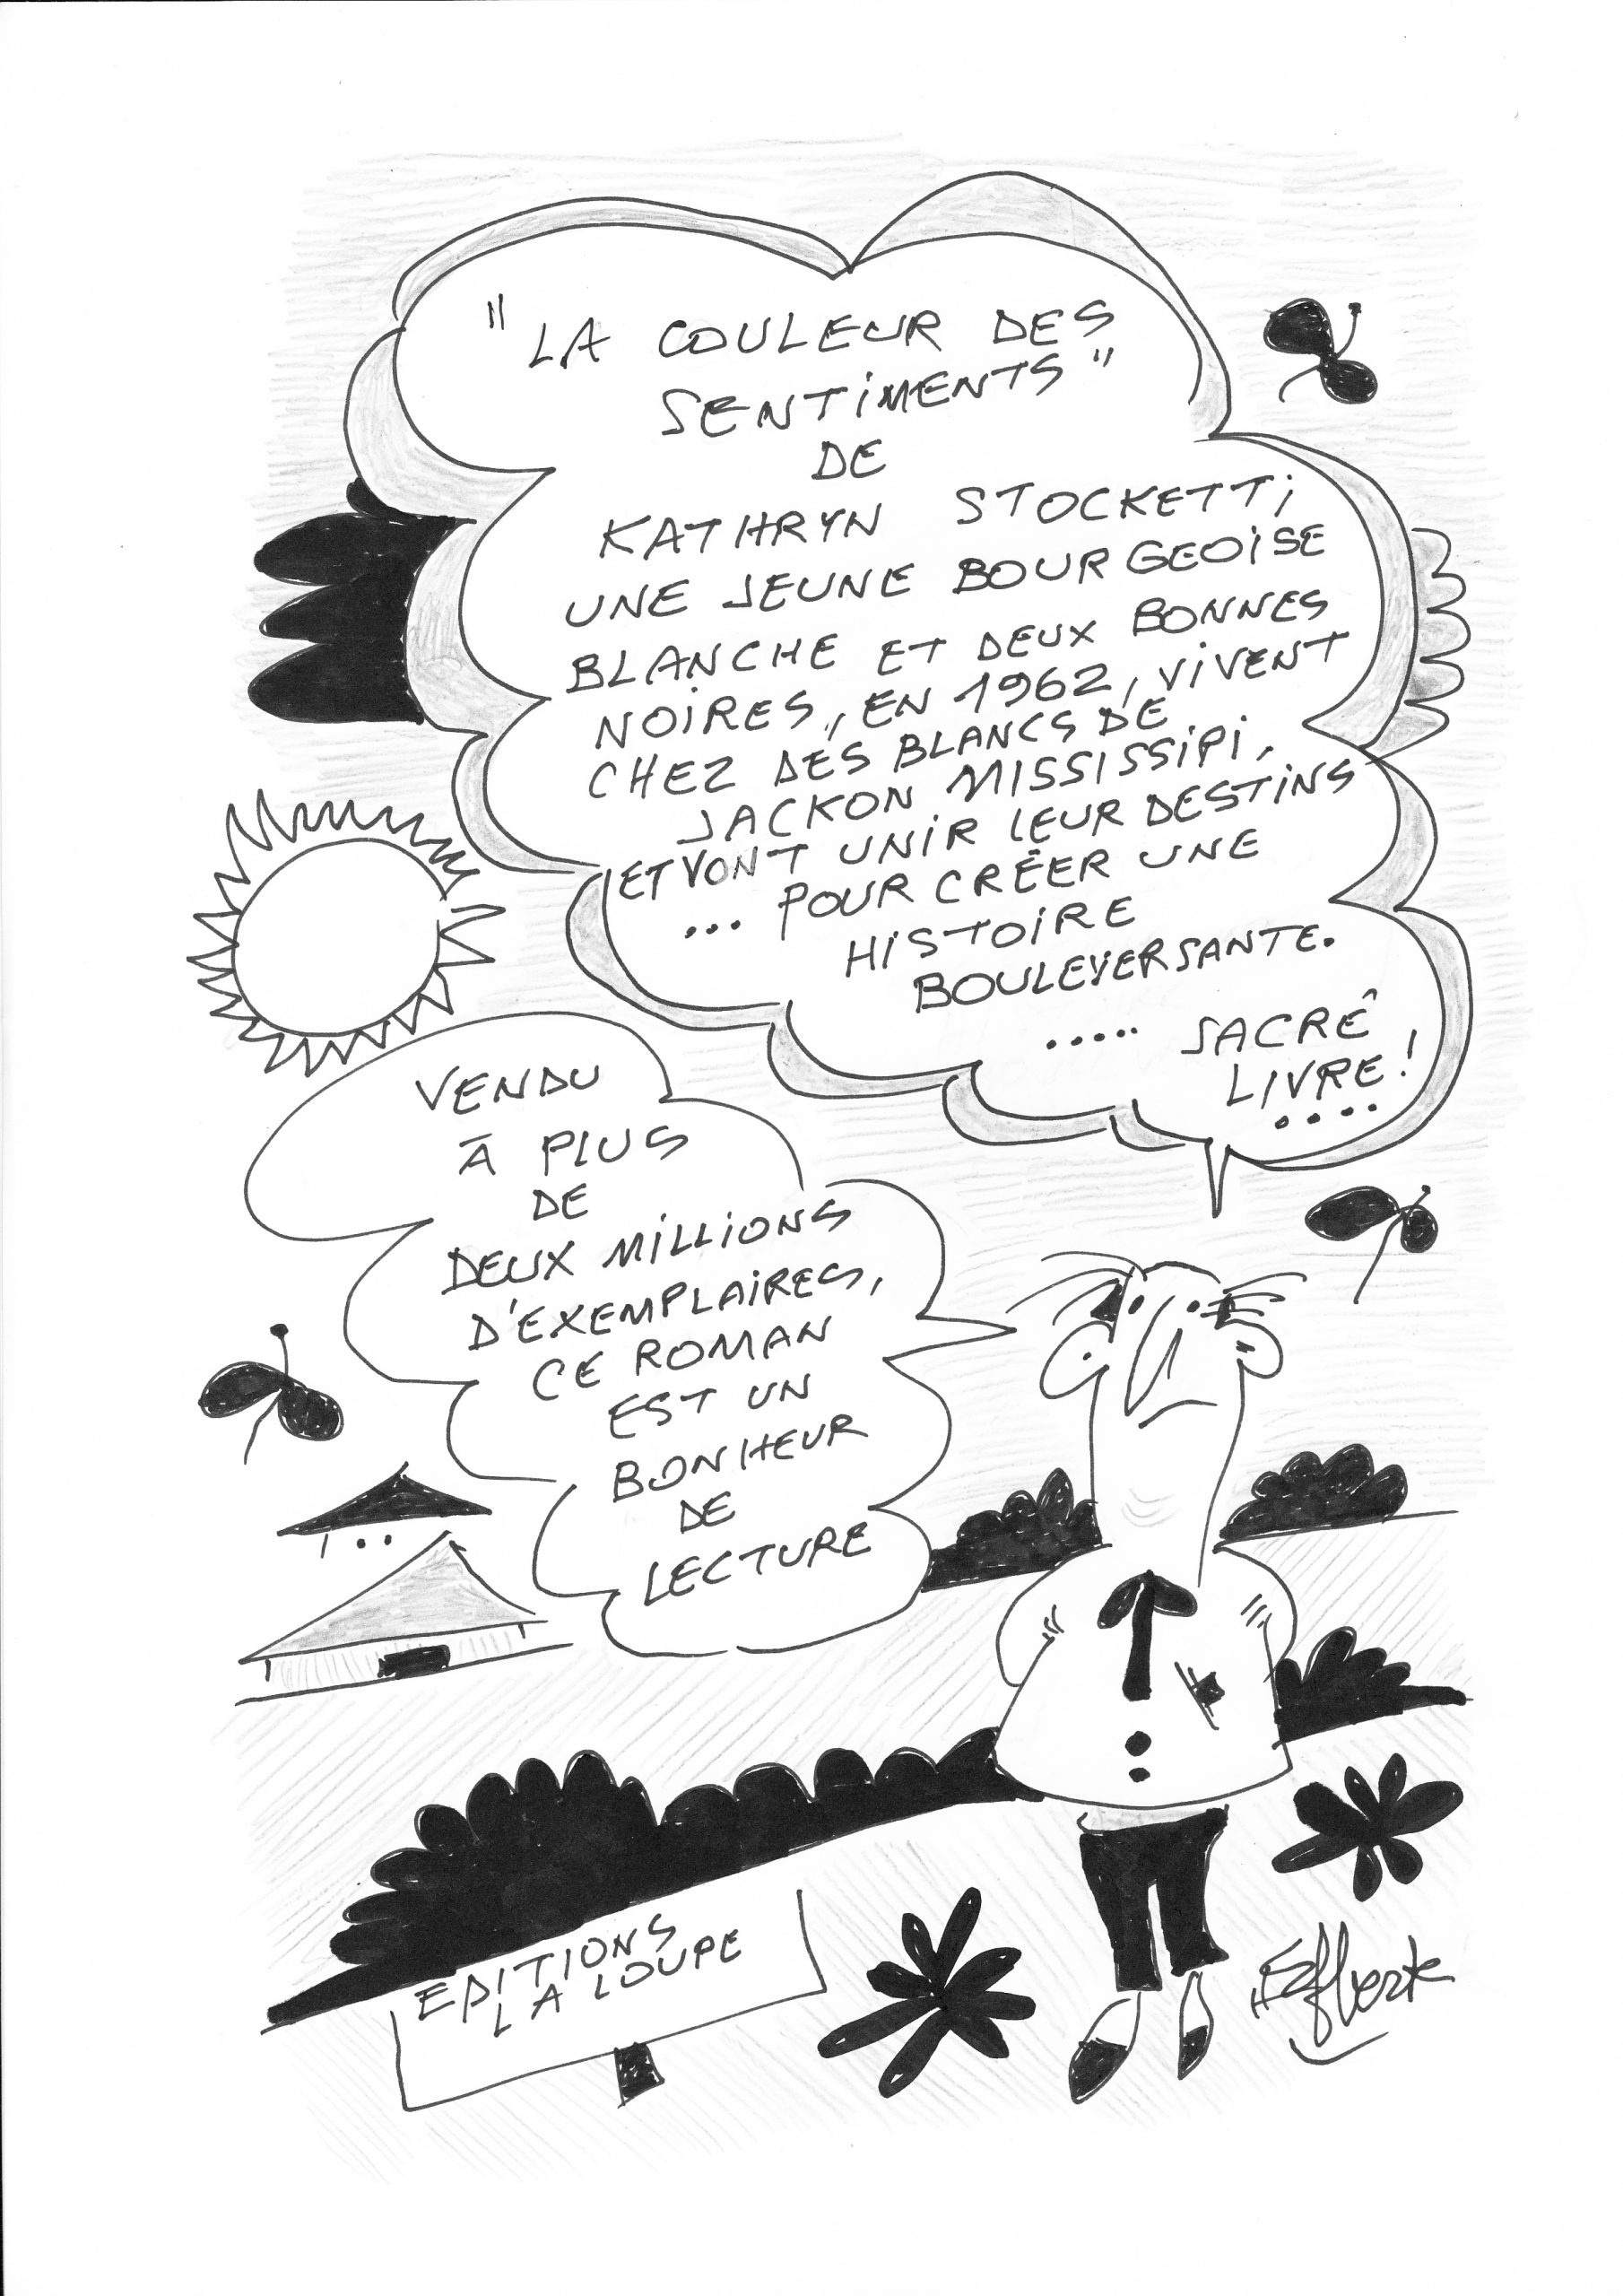 " LA COULEUR DES
SENTiMENTS "
DE
KATHRYN STOCKETTi
UNE JEUNE BOURGEOiSE
BLANCHE ET DEUX BONNES
NOiRES, EN 1962, ViVENT
CHEZ DES BLANCS DE
JACKON MiSSiSSiPi,
ET VONT UNiR LEUR DESTiNS
... POUR CRÉER UNE
HiSTOiRE
BOULEVERSANTE.
..... SACRÉ
LIVRE !
....
VENDU
À PLUS
DE
DEUX MiLLiONS
D'EXEMPLAiRES,
CE ROMAN
EST UN
BONHEUR
DE
LECTURE
EDITIONS
LA LOUPE